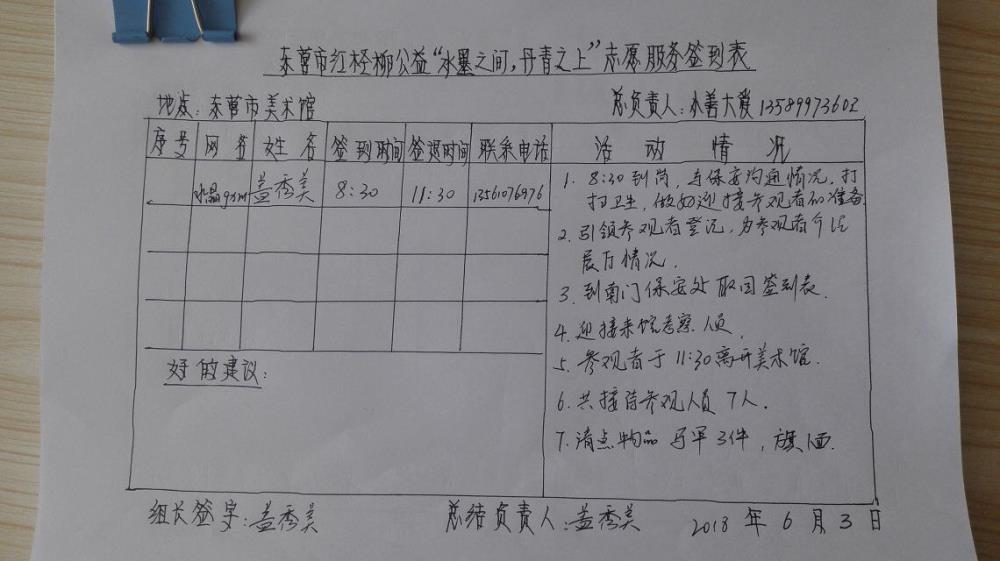 东营市红柽柳公益“水墨之间,丹青之上”志愿服务签到表
地点:东营市美术馆 总负责人:水善大爱 13589973602
序号 网签 姓名 签到时间 签退时间 联系电话 活动情况
水晶 盖秀美 8:30 11:30 13561076976
1. 8:30到岗,与保安沟通情况,打
扫卫生,做好迎接参观者的准备
2. 引领参观者登记,为参观者介绍
展厅情况.
3. 到南门保安处取回签到表.
4. 迎接来馆考察人员
5. 参观者于11:30离开美术馆.
6. 共接待参观人员7人.
7. 清点物品 马甲3件,旗1面.
好的建议:
组长签字:盖秀美 总结负责人:盖秀美 2018年6月3日